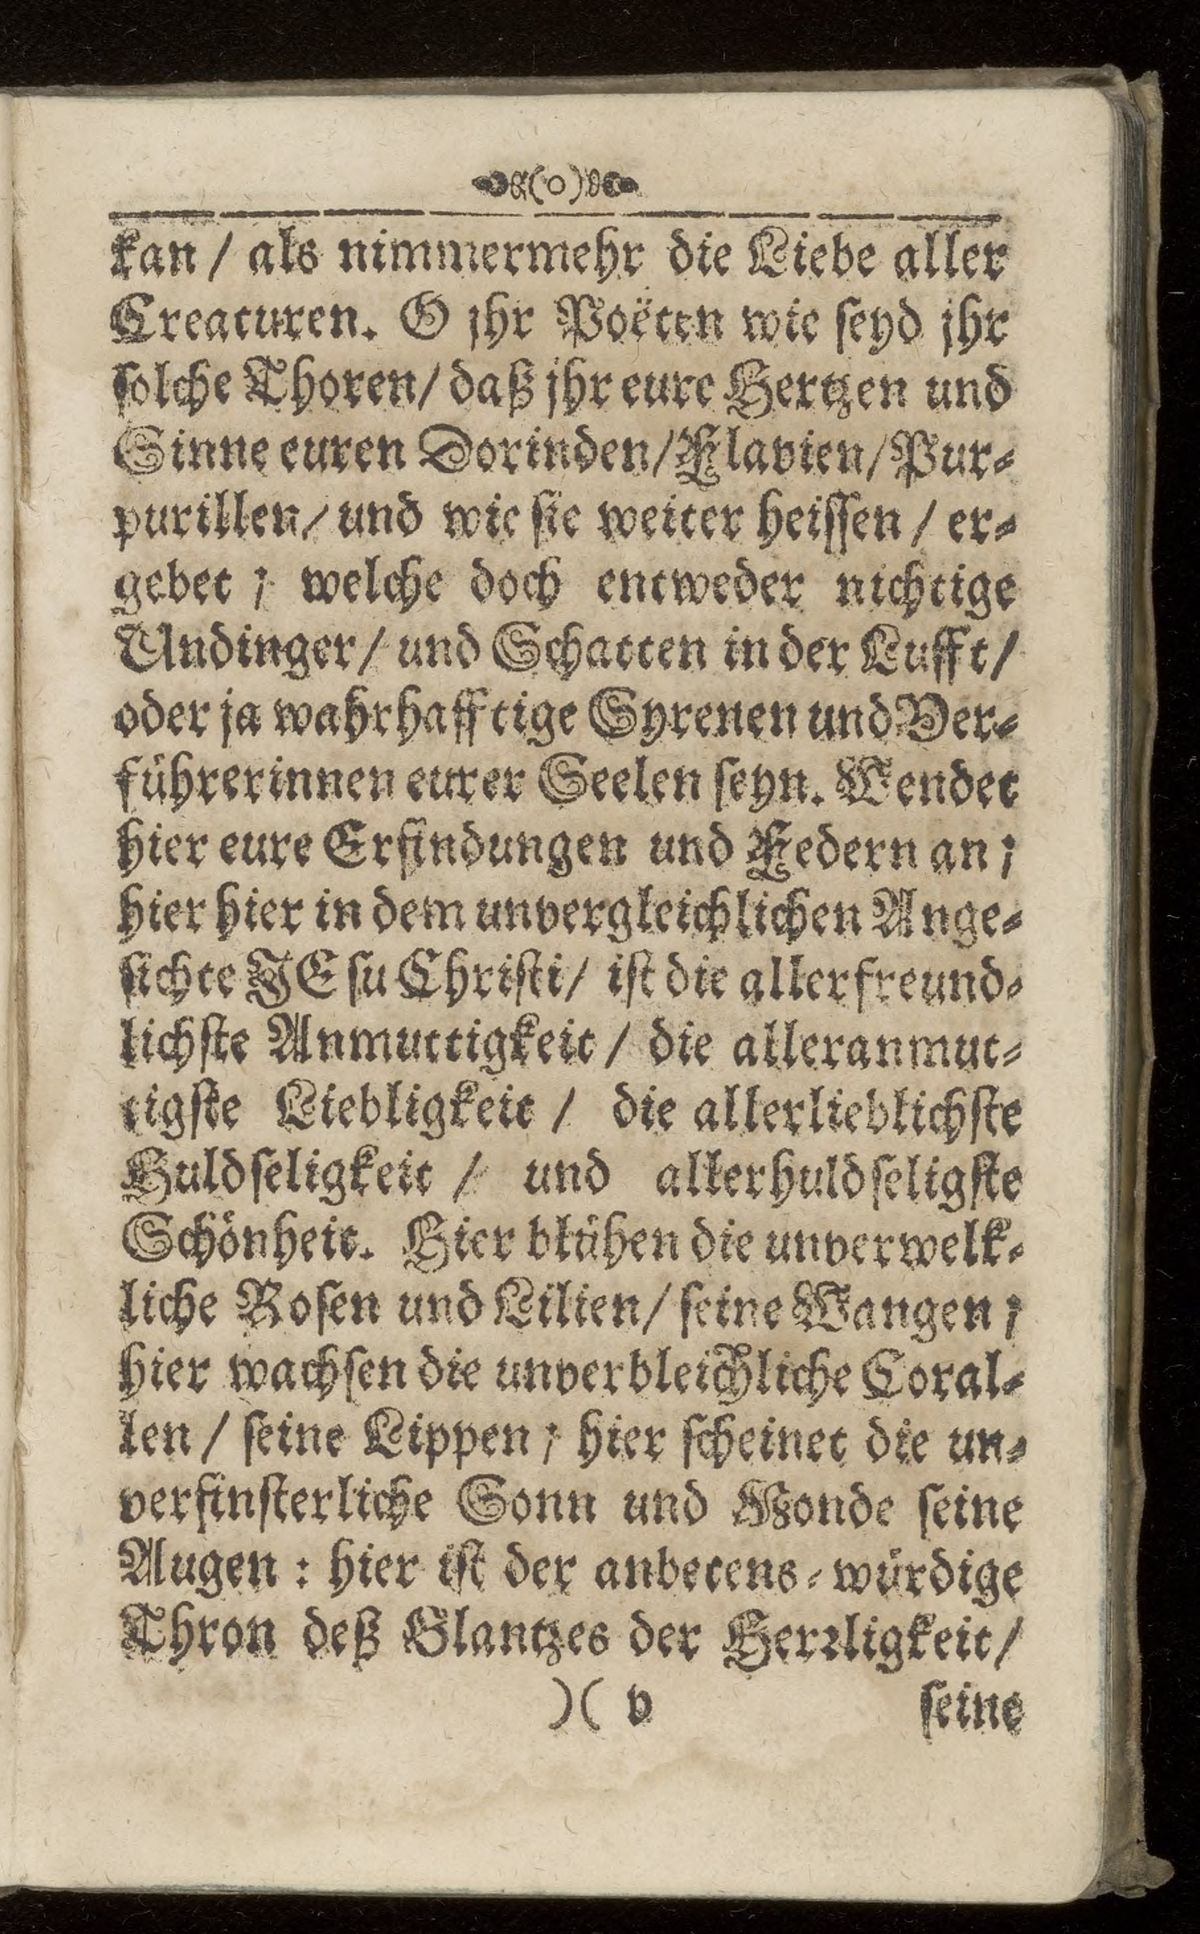 (o)
kan / als nimmermehr die Liebe aller
Creaturen. O jhr Poëten wie seyd jhr
solche Thoren / daß jhr eure Hertzen und
Sinne euren Dorinden / Flavien / Pur-
purillen / und wie sie weiter heissen / er-
gebet ; welche doch entweder nichtige
Undinger / und Schatten in der Lufft /
oder ja wahrhafftige Syrenen und Ver-
führerinnen eurer Seelen seyn. Wendet
hier eure Erfindungen und Federn an ;
hier hier in dem unvergleichlichen Ange-
sichte JEsu Christi / ist die allerfreund-
lichste Anmuttigkeit / die alleranmut-
tigste Liebligkeit / die allerlieblichste
Huldseligkeit / und allerhuldseligste
Schönheit. Hier blühen die unverwelk-
liche Rosen und Lilien / seine Wangen ;
hier wachsen die unverbleichliche Coral-
len / seine Lippen ; hier scheinet die un-
verfinsterliche Sonn und Monde seine
Augen : hier ist der anbetens-würdige
Thron deß Glantzes der Herrligkeit /
)( v seine